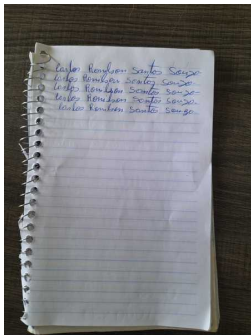 Carlos Romilson Santos Souza
Carlos Romilson Santos Souza
Carlos Romilson Santos Souza
Carlos Romilson Santos Souza.
Carlos Romilson Santos Souza.